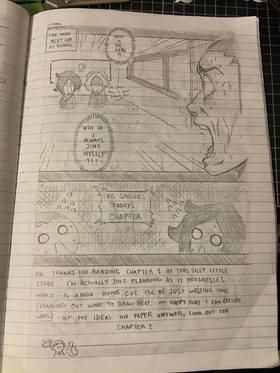 THE VERY
NEXT DAY
AT SCHOOL
WHY
IS
HE
HERE
WHY DO
I
ALWAYS
JINX
MYSELF
THIS CONCLUDES
TODAYS
CHAPTER
AN THANKS FOR READING CHAPTER 1 OF THIS SILLY LITTLE
COMIC I'M ACTUALLY JUST PLANNING AS IT PROGRESSES
WHICH IS KINDA DUMB CUZ I'LL BE JUST WASTING TIME
FIGURING OUT WHAT TO DRAW NEXT. I'M HAPPY THAT I CAN EXECUTE
MOST OF MY IDEAS ON PAPER ANYWAYS, LOOK OUT FOR
CHAPTER 2